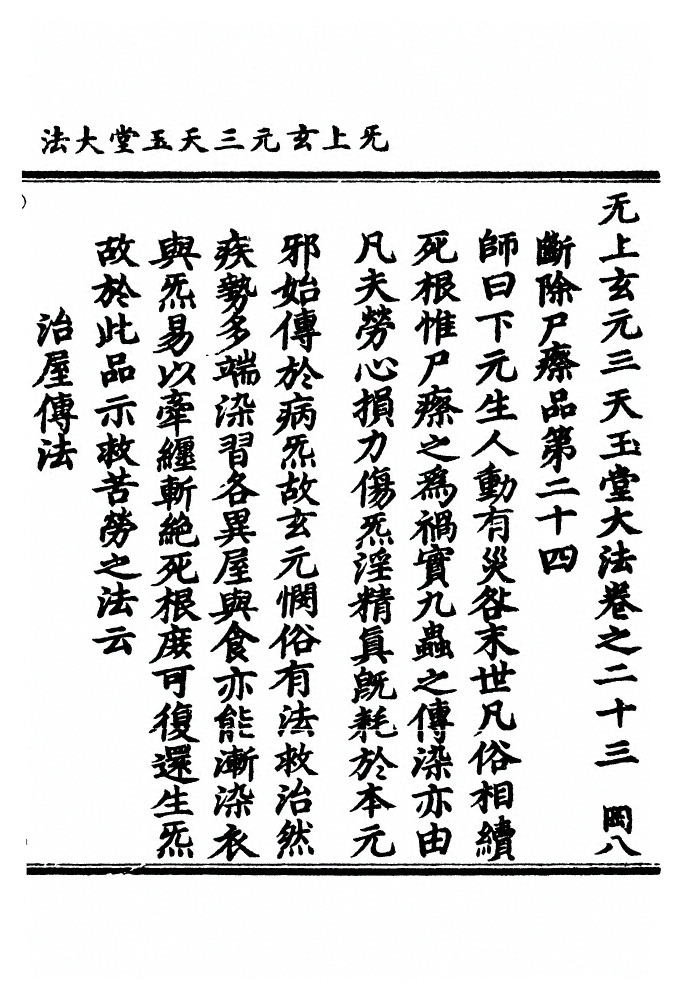 无上玄元三天玉堂大法
无上玄元三天玉堂大法卷之二十三 岡八
斷除尸瘵品第二十四
師曰下元生人動有災咎末世凡俗相續
死根惟尸瘵之爲禍實九蟲之傳染亦由
凡夫勞心損力傷炁淫精眞旣耗於本元
邪始傳於病炁故玄元憫俗有法救治然
疾勢多端染習各異屋與食亦能漸染衣
與炁易以牽纏斬絕死根庶可復還生炁
故於此品示救苦勞之法云
治屋傳法